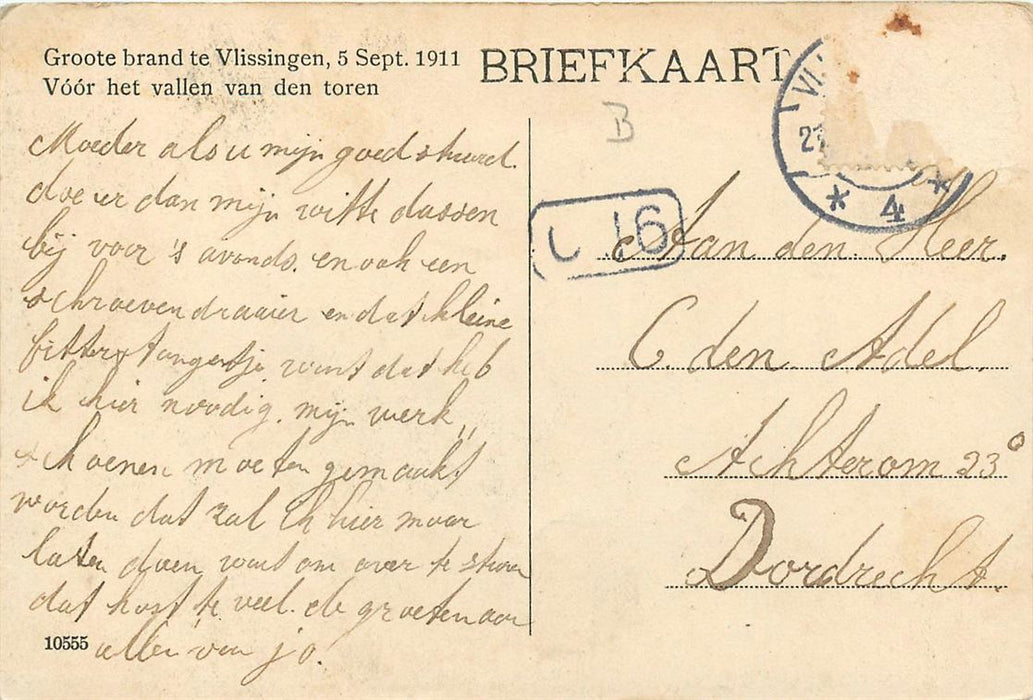 Groote brand te Vlissingen, 5 Sept. 1911
Vóór het vallen van den toren
BRIEFKAART
B
Moeder als u mijn goed stuurd.
doe er dan mijn witte dassen
bij voor 's avonds. en ook een
schroevendraaier en dat kleine
fitterstangetje want dat heb
ik hier noodig. mijn werk„
schoenen moeten gemaakt
worden dat zal ik hier maar
laten doen want om over te sturen
dat kost te veel. de groeten aan
allen van jo.
10555
VL
21
* 4 *
J 16
Aan den Heer.
C. den Adel.
Achterom 23°
Dordrecht.